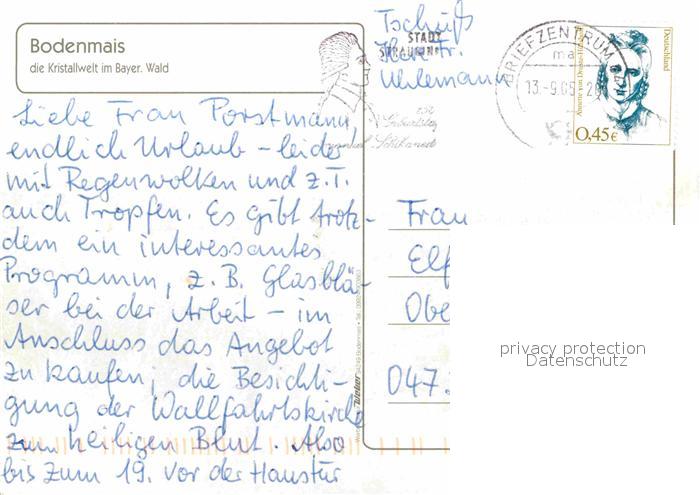 Bodenmais
die Kristallwelt im Bayer. Wald
Liebe Frau Porstmann
endlich Urlaub – leider
mit Regenwolken und z.T.
auch Tropfen. Es gibt trotz-
dem ein interessantes
Programm, z.B. Glasblä-
ser bei der Arbeit – im
Anschluss das Angebot
zu kaufen, die Besichti-
gung der Wallfahrtskirche
zum heiligen Blut. Also
bis zum 19. vor der Haustür
Tschüß
Fr.
Uhlemann
STADT
STRAUBING
Geburtstag
BRIEFZENTRUM
ma
Deutschland
0,45€
Frau
Elf
Obe
047
privacy protection
Datenschutz